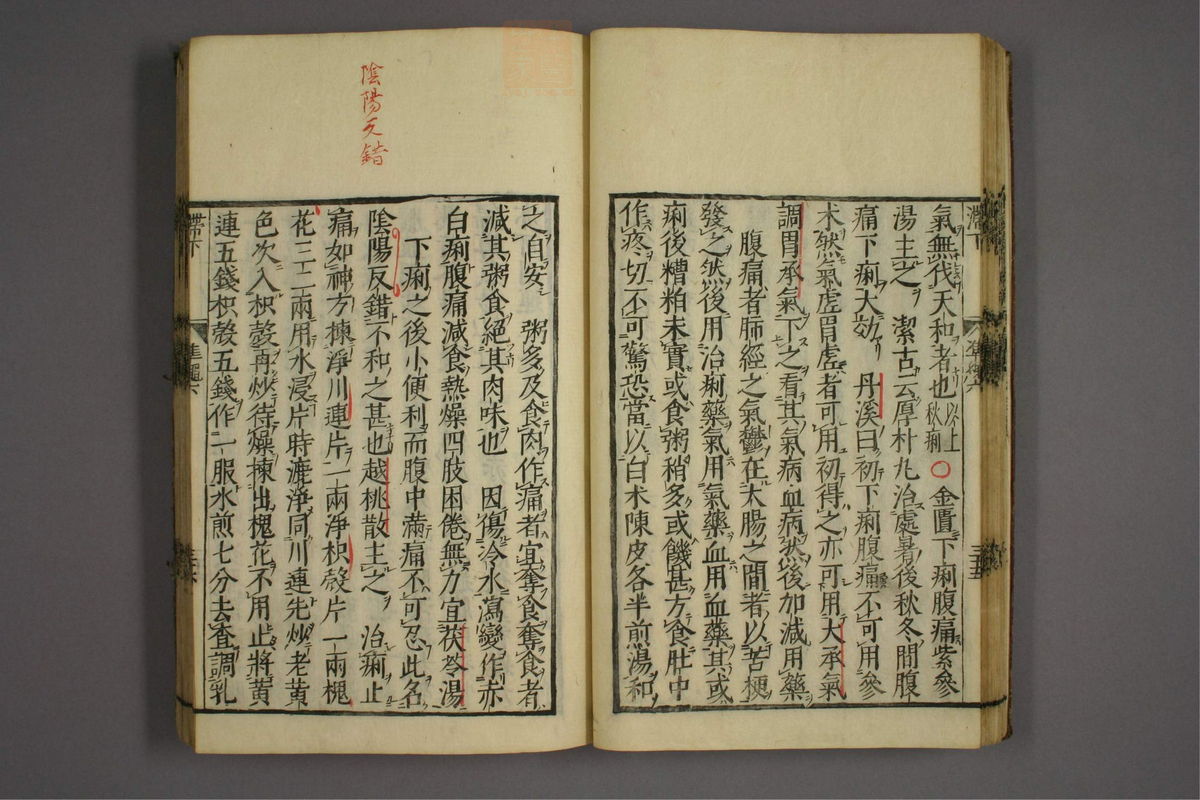 氣無伐天和者也以上秋痢○金匱下痢腹痛紫參
湯主之 潔古云厚朴丸治處暑後秋冬間腹
痛下痢大効 丹溪曰初下痢腹痛不可用參
朮然氣虛胃虛者可用初得之亦可用大承氣
調胃承氣下之看其氣病血病然後加減用藥
腹痛者肺經之氣鬱在大腸之間者以苦梗
發之然後用治痢藥氣用氣藥血用血藥其或
痢後糟粕未實或食粥稍多或饑甚方食肚中
作疼切不可驚恐當以白朮陳皮各半煎湯和
之自安 粥多及食肉作痛者宜奪食奪食者
減其粥食絕其肉味也 因傷冷水瀉變作赤
白痢腹痛減食熱燥四肢困倦無力宜茯苓湯
下痢之後小便利而腹中滿痛不可忍此名
陰陽反錯不和之甚也越桃散主之 治痢止
痛如神方揀淨川連片一兩淨枳殼片一兩槐
花三二兩用水浸片時漉淨同川連先炒老黃
色次入枳殼再炒待燥揀出槐花不用止將黃
連五錢枳殼五錢作一服水煎七分去査調乳
陰陽反錯
滯下
滯下
準繩六